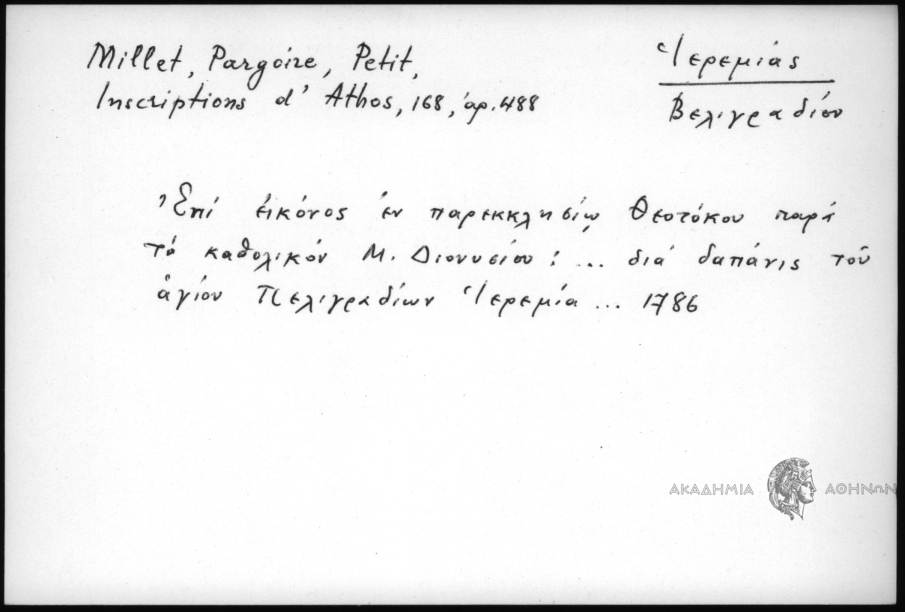 Millet, Pargoire, Petit,
Inscriptions d' Athos, 168, ἀρ. 488
Ἱερεμίας
Βελιγραδίου
Ἐπί εἰκόνος ἐν παρεκκλησίῳ Θεοτόκου παρά
τό καθολικόν Μ. Διονυσίου: ... διά δαπάνις τοῦ
ἁγίου Πελιγραδίων Ἱερεμία ... 1786
ΑΚΑΔΗΜΙΑ ΑΘΗΝΩΝ